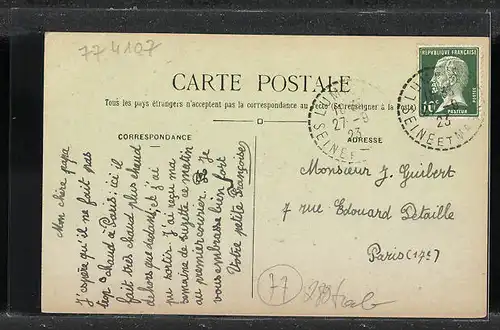 77 4107
CARTE POSTALE
Tous les pays étrangers n'acceptent pas la correspondance au recto (Se renseigner à la Poste)
CORRESPONDANCE
ADRESSE
Mon chère papa
J'espère qu'il ne fait pas
trop chaud à Paris: ici il
fait très chaud plus chaud
dehors que dedans, et j'ai
pu sortir. J'ai reçu ma
semaine de Suzette ce matin
au premier courier. Je
vous embrasse bien fort
Votre petite Françoise
Monsieur J. Guibert
7 rue Edouard Détaille
Paris (17e)
REPUBLIQUE FRANÇAISE
10c
POSTES
PASTEUR
27-8
23
SEINE ET
23
SEINE ET MARNE
77